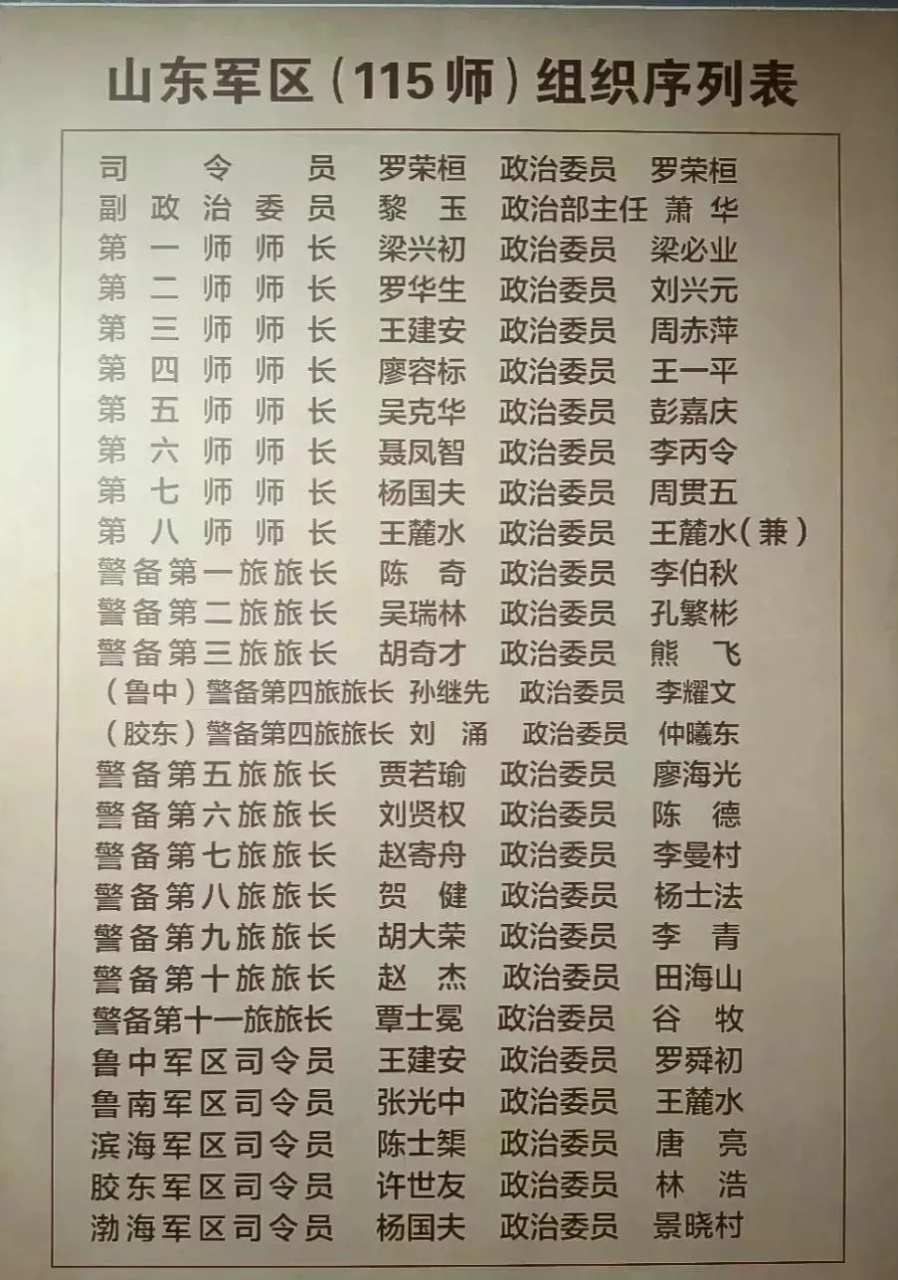 山东军区（115师）组织序列表
司令员 罗荣桓 政治委员 罗荣桓
副政治委员 黎玉 政治部主任 萧华
第一师师长 梁兴初 政治委员 梁必业
第二师师长 罗华生 政治委员 刘兴元
第三师师长 王建安 政治委员 周赤萍
第四师师长 廖容标 政治委员 王一平
第五师师长 吴克华 政治委员 彭嘉庆
第六师师长 聂凤智 政治委员 李丙令
第七师师长 杨国夫 政治委员 周贯五
第八师师长 王麓水 政治委员 王麓水（兼）
警备第一旅旅长 陈奇 政治委员 李伯秋
警备第二旅旅长 吴瑞林 政治委员 孔繁彬
警备第三旅旅长 胡奇才 政治委员 熊飞
（鲁中）警备第四旅旅长 孙继先 政治委员 李耀文
（胶东）警备第四旅旅长 刘涌 政治委员 仲曦东
警备第五旅旅长 贾若瑜 政治委员 廖海光
警备第六旅旅长 刘贤权 政治委员 陈德
警备第七旅旅长 赵寄舟 政治委员 李曼村
警备第八旅旅长 贺健 政治委员 杨士法
警备第九旅旅长 胡大荣 政治委员 李青
警备第十旅旅长 赵杰 政治委员 田海山
警备第十一旅旅长 覃士冕 政治委员 谷牧
鲁中军区司令员 王建安 政治委员 罗舜初
鲁南军区司令员 张光中 政治委员 王麓水
滨海军区司令员 陈士榘 政治委员 唐亮
胶东军区司令员 许世友 政治委员 林浩
渤海军区司令员 杨国夫 政治委员 景晓村